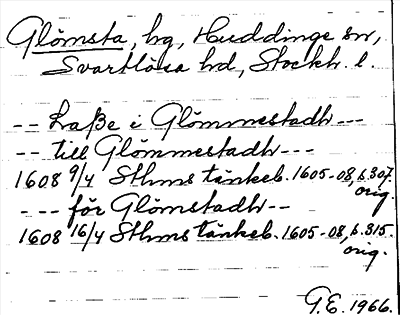 Glömsta, hg, Huddinge sn,
Svartlösa hd, Stockh. l.
-- Laße i Glömmestadh ---
-- till Glömmestadh ---
1608 9/4 Sthms tänkeb. 1605-08, s. 307.
orig.
--- för Glömstadh --
1608 16/4 Sthms tänkeb. 1605-08, s. 315.
orig.
G.E. 1966.